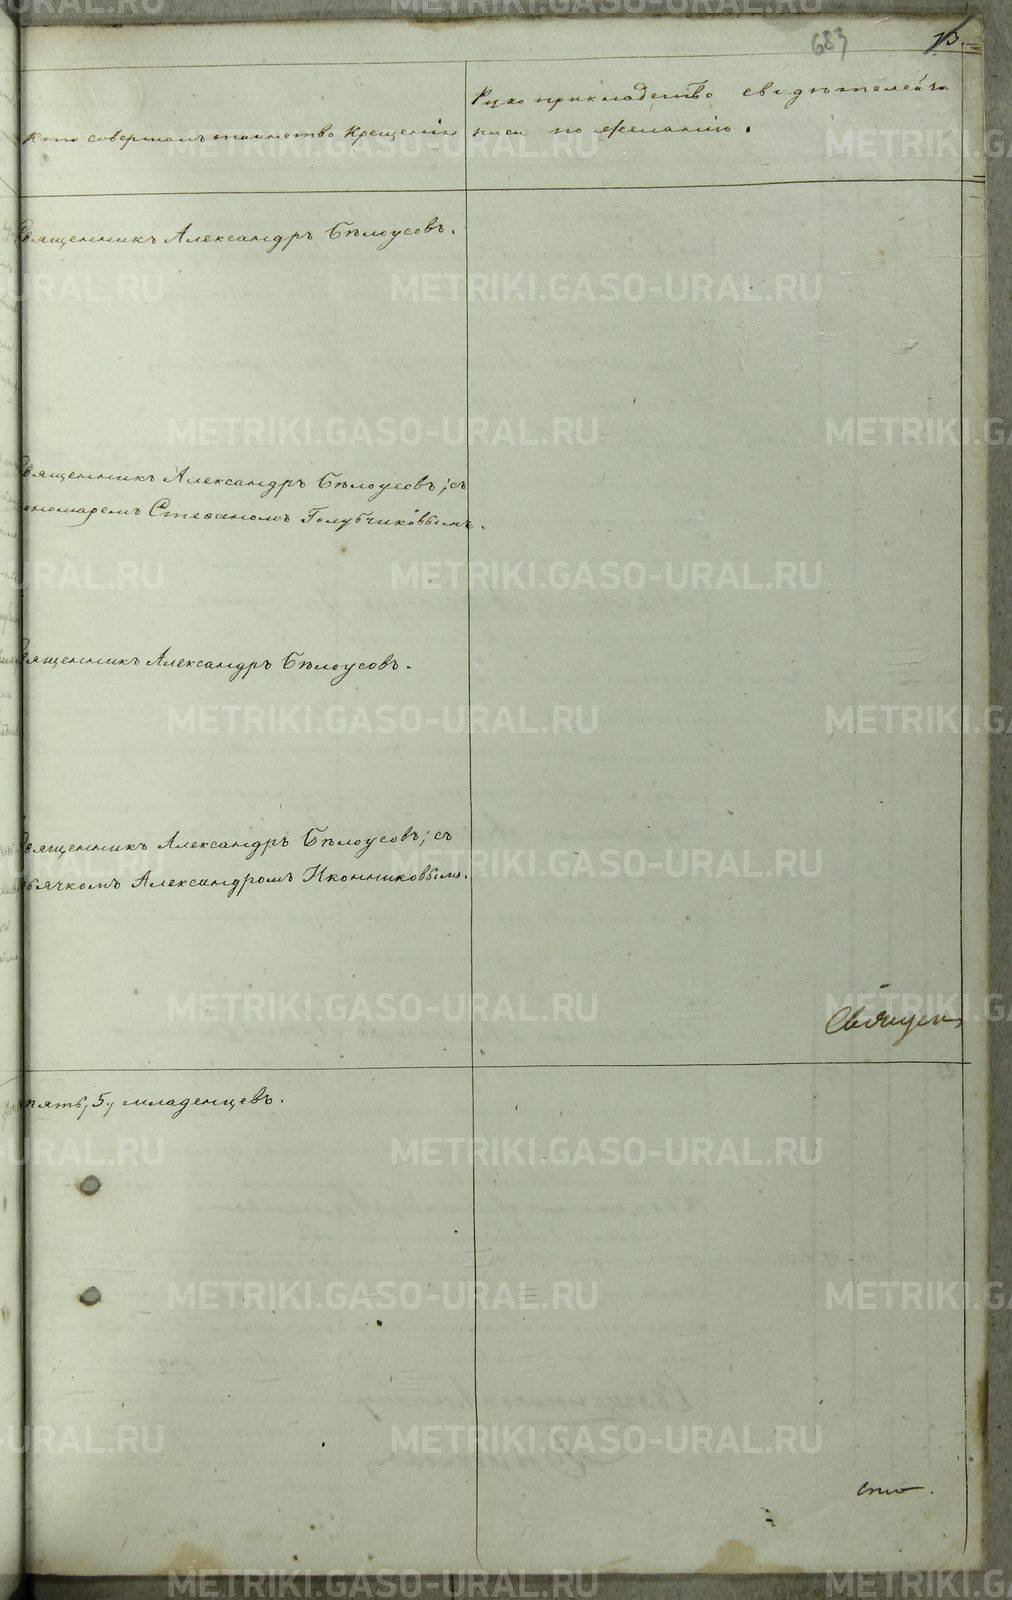 683
73.
Кто совершалъ таинство крещенія
Рукоприкладство свидѣтелей за
писи по желанію.
Священникъ Александръ Бѣлоусовъ.
Священникъ Александръ Бѣлоусовъ; съ
пономаремъ Стефаномъ Голубчиковымъ.
Священникъ Александръ Бѣлоусовъ.
Священникъ Александръ Бѣлоусовъ; съ
дьячкомъ Александромъ Иконниковымъ.
пять, 5, младенцевъ.
METRIKI.GASO-URAL.RU